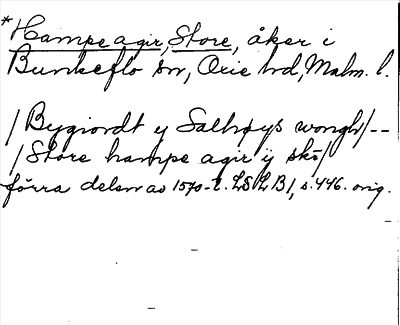 *Hampe agir, Store, åker i
Bunkeflo sn, Oxie hd, Malm. l.
/Bygiordt y Salhøys wongh/--
/Store hampe agir y skø/
förra delen av 1570-t. LSLB1, s.446. orig.